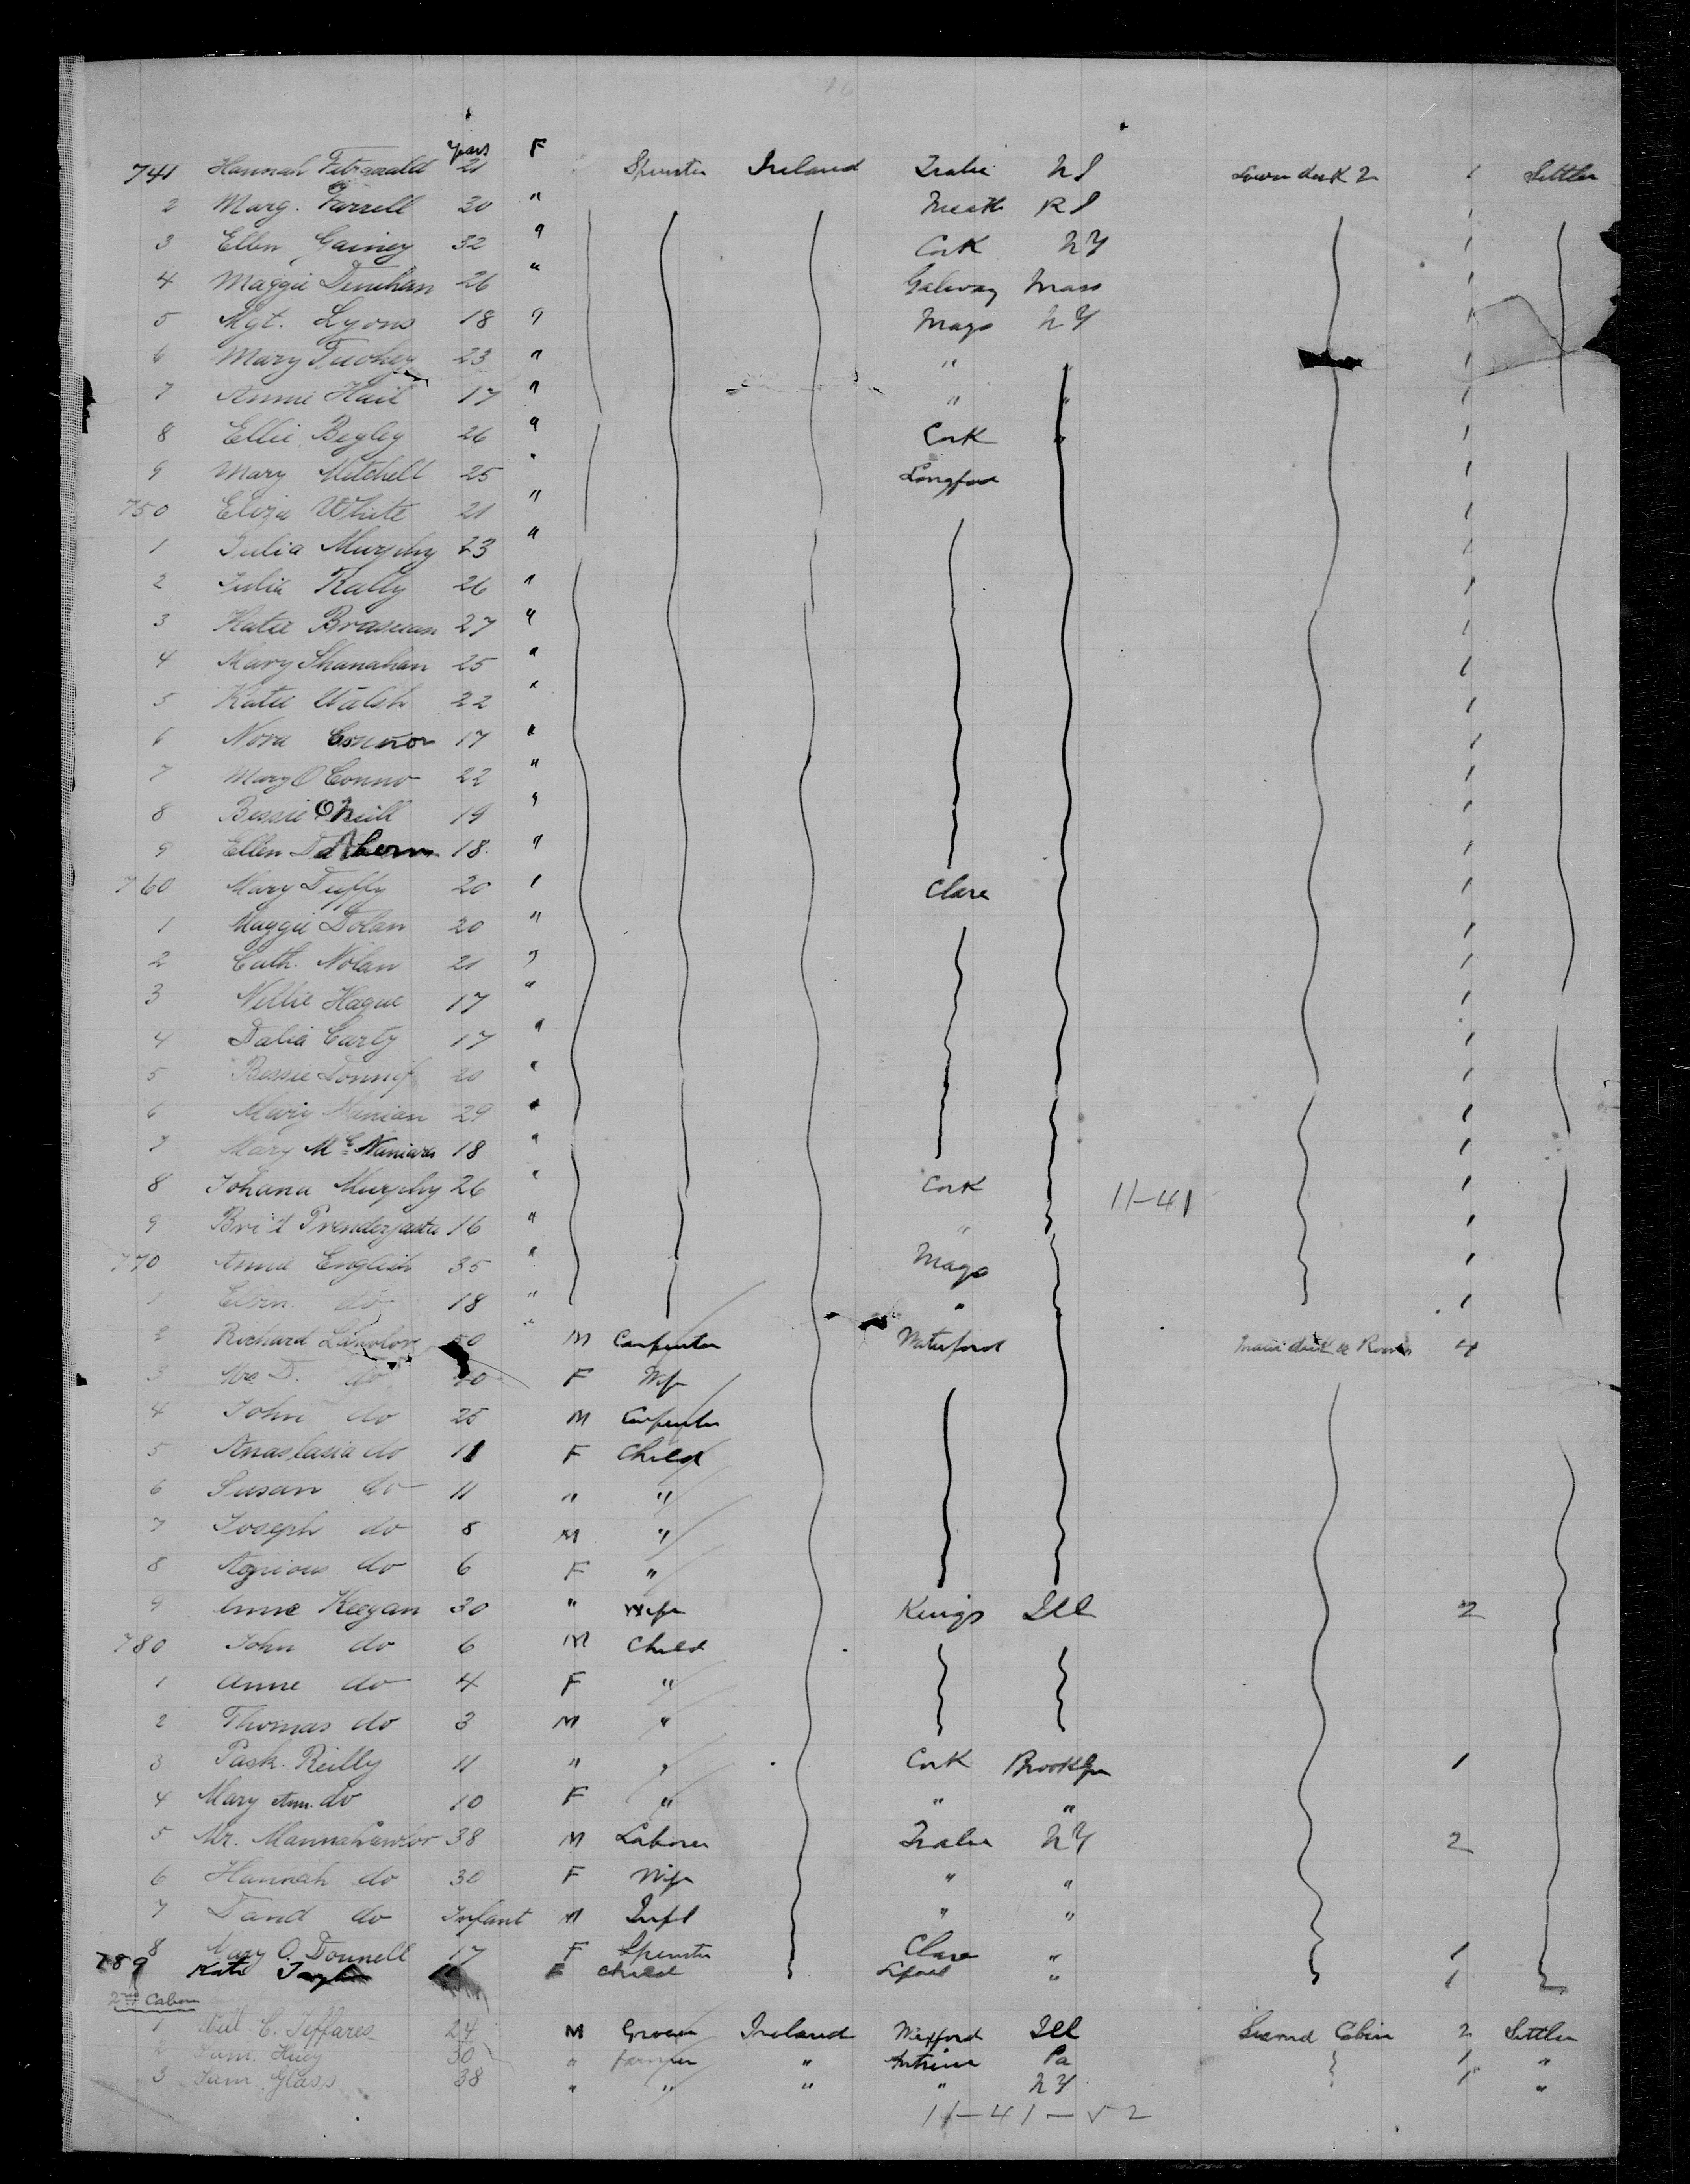 Years F
741 Hannah Fitzgerald 21 Spinster Ireland Tralee Lower deck 2 1 Settler
2 Marg. Farrell 20 " Meath R I 1
3 Ellen Gainey 32 " Cork NY 1
4 Maggie Dinehan 26 " Galway Mass 1
5 Mgt. Lyons 18 " Mayo NY 1
6 Mary Tuohey 23 " " 1
7 Annie Hait 17 " " " 1
8 Ellie Begley 26 " Cork " 1
9 Mary Mitchell 25 " Longford 1
750 Eliza White 21 " 1
1 Julia Murphy 23 " 1
2 Julia Rally 26 " 1
3 Katie 27 " 1
4 Mary Shanahan 25 " 1
5 Katie Walsh 22 " 1
6 Nora Connor 17 " 1
7 Mary O Conno 22 " 1
8 Bessie O'Neill 19 " 1
9 Ellen 18 " 1
760 Mary Duffy 20 " Clare 1
1 Maggie Dolan 20 " 1
2 Cath. Nolan 21 " 1
3 Nellie Hague 17 " 1
4 Dalia Carty 17 " 1
5 Bessie 20 " 1
6 Mary 29 " 1
7 Mary Mc 18 " 1
8 Johana Murphy 26 " Cork 11-41 1
9 Bri't 16 " " 1
770 Annie English 35 " Mayo 1
1 do 18 " " 1
2 Richard M Carpenter Waterford Main deck 4
3 do F Wife
4 John do 25 M Carpenter
5 Anastasia do 11 F Child
6 Susan do 11 " "
7 Joseph do 8 M "
8 Agnious do 6 F "
9 Anne Keegan 30 " Wife Kings Ill 2
780 John do 6 M Child
1 Anne do 4 F "
2 Thomas do 3 M "
3 Reilly 11 " " Cork Brooklyn 1
4 Mary Ann. do 10 F " " "
5 Mr. 38 M Laborer Tralee NY 2
6 Hannah do 30 F Wife " "
7 do Infant M Inft " "
8 Mary O. Donnell 17 F Spinster Clare " 1
789 Kate F Child " 1
2nd Cabin
1 C. Jeffares 24 M Grocer Ireland Wexford Ill Second Cabin 2 Settler
2 30 " farmer " Antrim Pa 1 "
3 Sam. Glass 38 " " " " NY 1 "
11-41-52